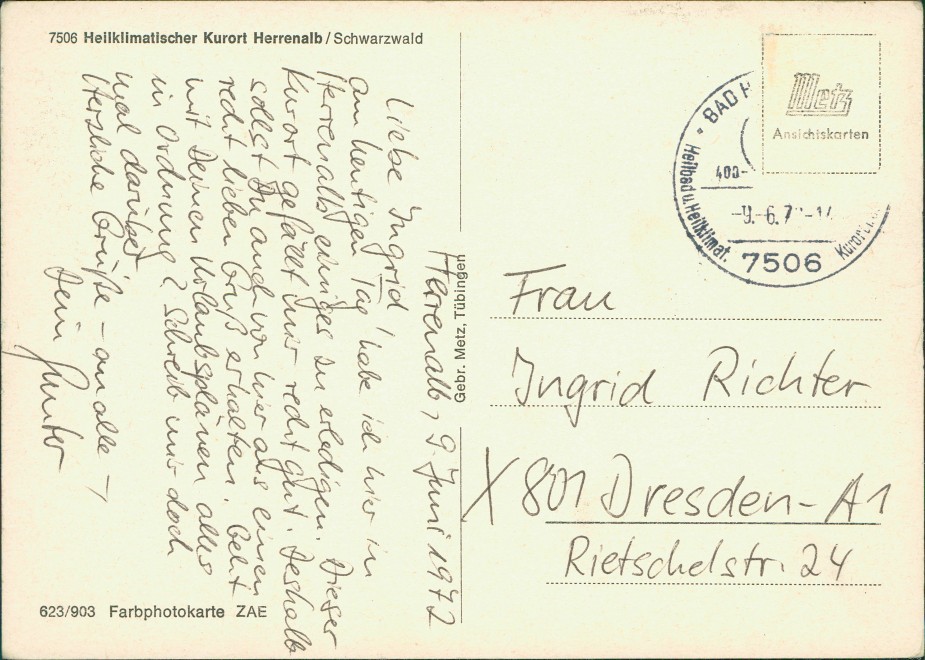 7506 Heilklimatischer Kurort Herrenalb / Schwarzwald
Herrenalb, 9. Juni 1972
Liebe Ingrid!
Am heutigen Tag habe ich hier in
Herrenalb einiges zu erledigen. Dieser
Kurort gefällt mir recht gut. Deshalb
sollst Du auch von hier aus einen
recht lieben Gruß erhalten. Geht
mit Deinen Urlaubsplänen alles
in Ordnung? Schreib mir doch
mal darüber
Herzliche Grüße – an alle –
Dein Gunter
623/903 Farbphotokarte ZAE
Gebr. Metz, Tübingen
Metz
Ansichtskarten
BAD H
Heilbad u. Heilklimat.
Kurort
400-
-9.-6.7
7506
Frau
Ingrid Richter
X 801 Dresden-A1
Rietschelstr. 24